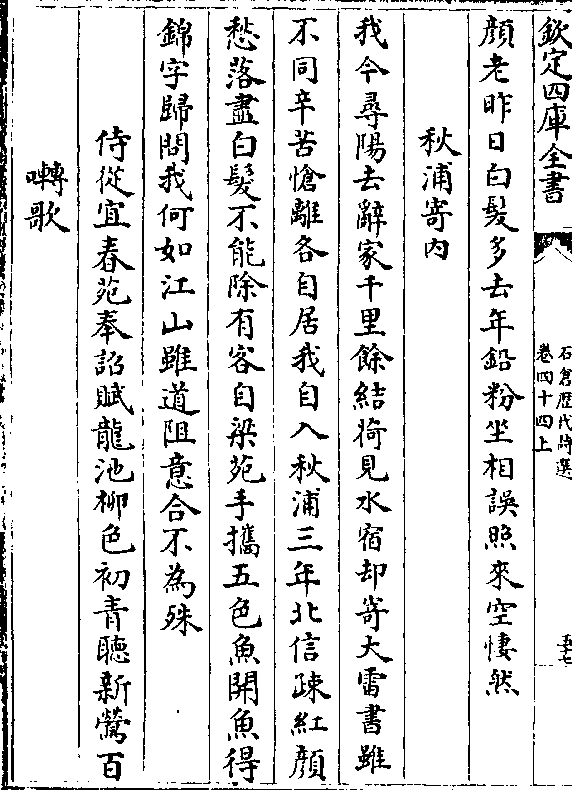 欽定四庫全書
石倉歷代詩選
卷四十四上
五十七
顔老昨日白髮多去年鉛粉坐相誤照來空悽然
秋浦寄內
我今尋陽去辭家千里餘結荷見水宿却寄大雷書雖
不同辛苦愴離各自居我自入秋浦三年北信疎紅顔
愁落盡白髮不能除有客自梁苑手攜五色魚開魚得
錦字歸問我何如江山雖道阻意合不為殊
侍從宜春苑奉詔賦龍池柳色初青聽新鶯百
囀歌